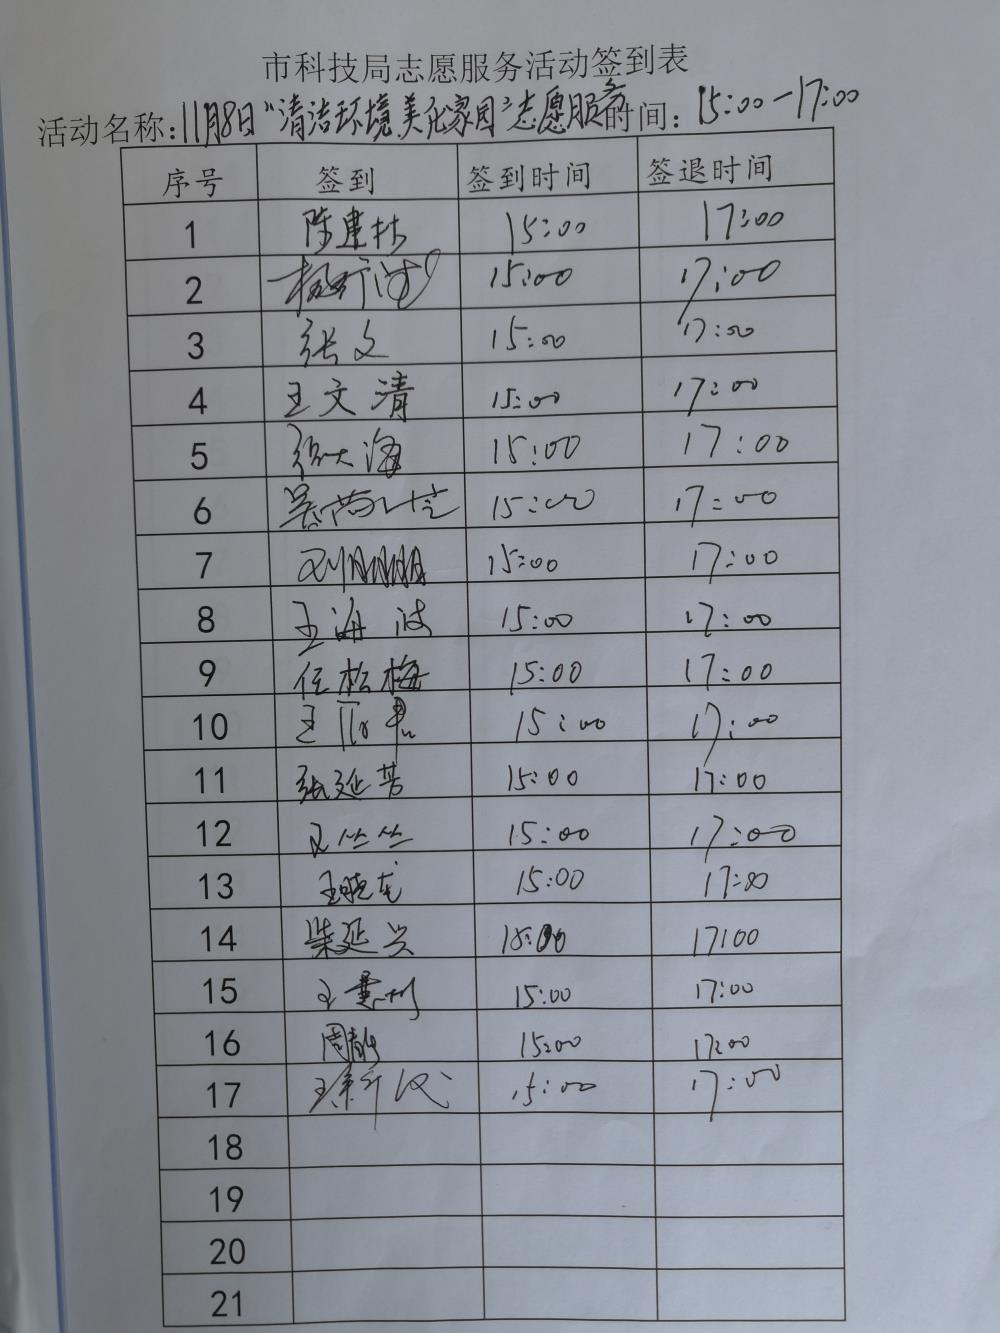 市科技局志愿服务活动签到表
活动名称:11月8日“清洁环境 美化家园”志愿服务 时间:15:00-17:00
序号 签到 签到时间 签退时间
1 陈建林 15:00 17:00
2 15:00 17:00
3 张文 15:00 17:00
4 王文清 15:00 17:00
5 张大海 15:00 17:00
6 15:00 17:00
7 刘明明 15:00 17:00
8 王海波 15:00 17:00
9 任松梅 15:00 17:00
10 王 15:00 17:00
11 张延芳 15:00 17:00
12 王竺竺 15:00 17:00
13 王晓龙 15:00 17:00
14 柴延兴 15:00 17:00
15 王 15:00 17:00
16 周静 15:00 17:00
17 15:00 17:00
18
19
20
21